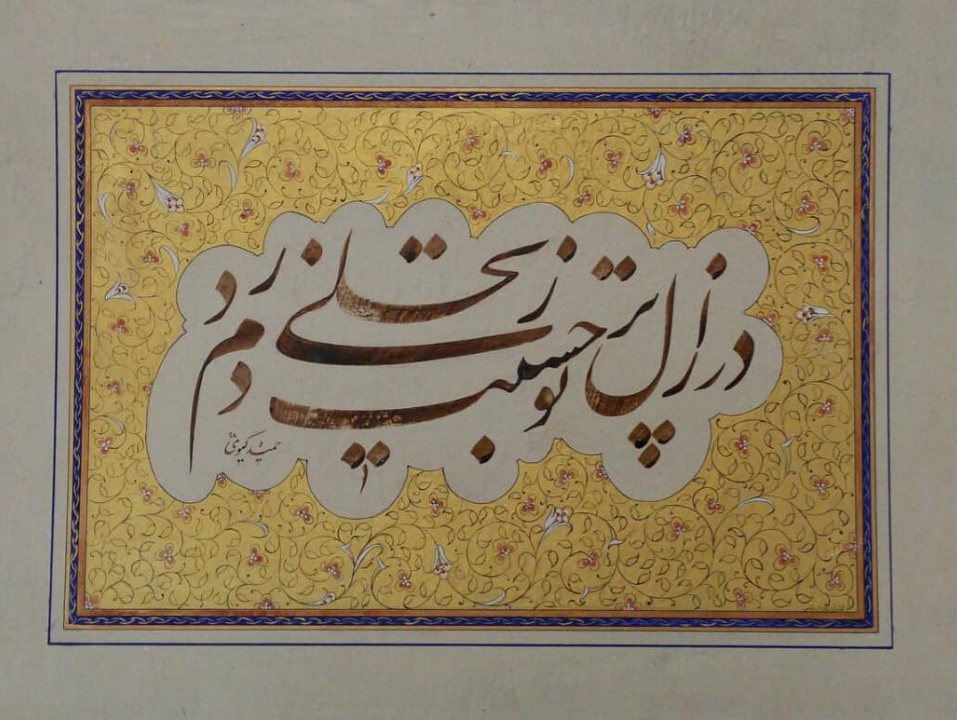 در ازل پرتو حسنت ز تجلی دم زد
حمید کیوی